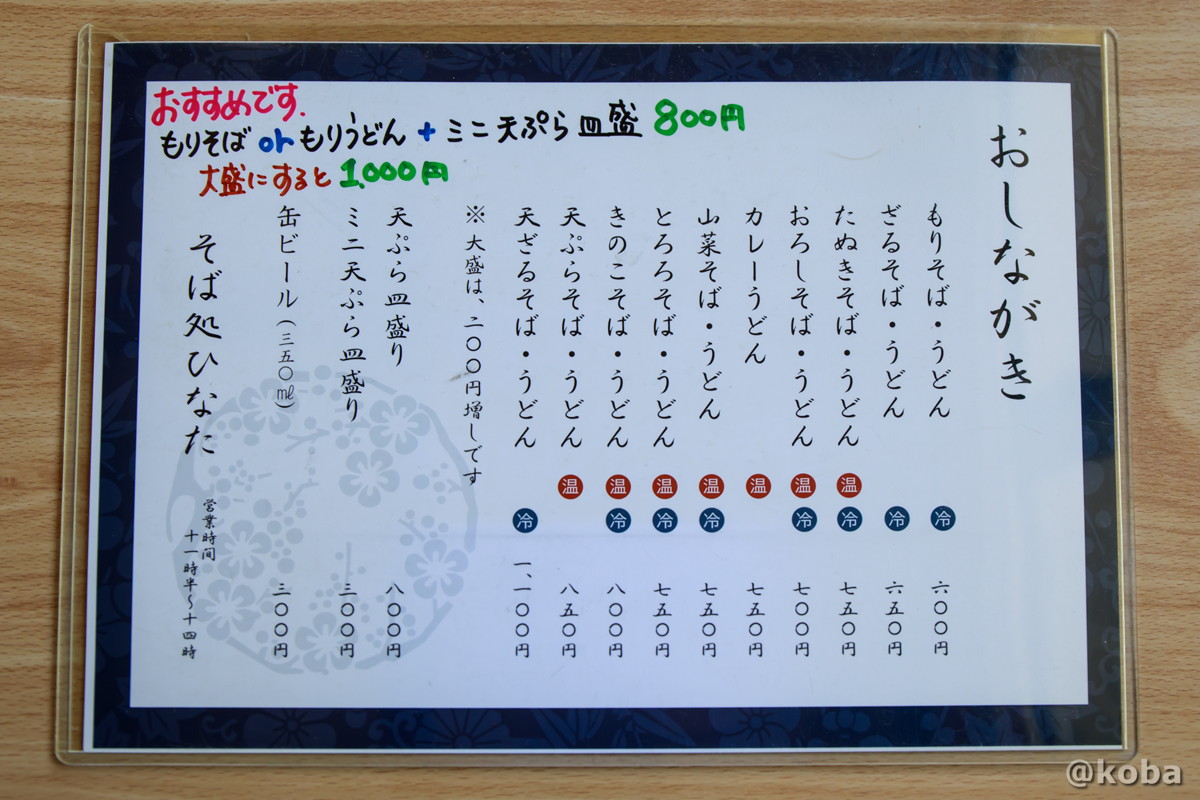 おすすめです.
もりそば or もりうどん + ミニ天ぷら皿盛 800円
大盛にすると 1,000円
おしながき
もりそば・うどん 冷 六〇〇円
ざるそば・うどん 冷 六五〇円
たぬきそば・うどん 温 冷 七五〇円
おろしそば・うどん 温 冷 七〇〇円
カレーうどん 温 七五〇円
山菜そば・うどん 温 冷 七五〇円
とろろそば・うどん 温 冷 七五〇円
きのこそば・うどん 温 冷 八〇〇円
天ぷらそば・うどん 温 八五〇円
天ざるそば・うどん 冷 一、一〇〇円
※ 大盛は、二〇〇円増しです
天ぷら皿盛り 八〇〇円
ミニ天ぷら皿盛り 三〇〇円
缶ビール(三五〇㎖) 三〇〇円
そば処ひなた
営業時間
十一時半～十四時
@koba